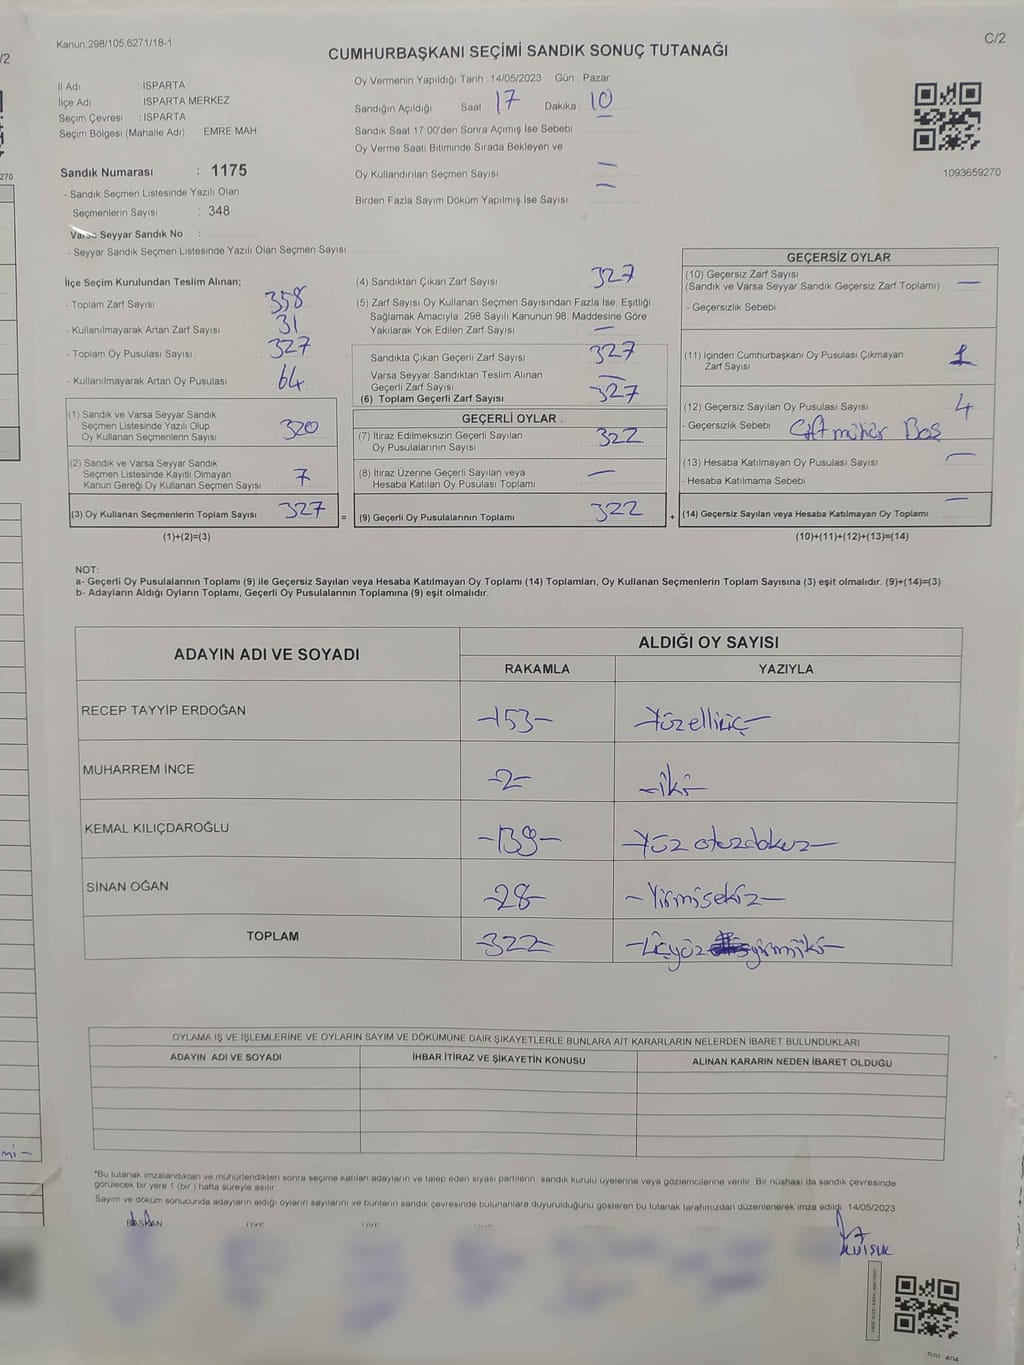 Kanun;298/105,6271/18-1
C/2
CUMHURBAŞKANI SEÇİMİ SANDIK SONUÇ TUTANAĞI
İl Adı : ISPARTA
İlçe Adı ISPARTA MERKEZ
Seçim Çevresi : ISPARTA
Seçim Bölgesi (Mahalle Adı) EMRE MAH.
Oy Vermenin Yapıldığı Tarih : 14/05/2023 Gün : Pazar
Sandığın Açıldığı Saat : 17 Dakika : 10
Sandık Saat 17:00'den Sonra Açımış İse Sebebi :
Oy Verme Saati Bitiminde Sırada Bekleyen ve
Oy Kullandırılan Seçmen Sayısı : —
Birden Fazla Sayım Döküm Yapılmış İse Sayısı : —
1093659270
Sandık Numarası : 1175
- Sandık Seçmen Listesinde Yazılı Olan
Seçmenlerin Sayısı : 348
Varsa Seyyar Sandık No :
- Seyyar Sandık Seçmen Listesinde Yazılı Olan Seçmen Sayısı:
İlçe Seçim Kurulundan Teslim Alınan;
- Toplam Zarf Sayısı : 358
- Kullanılmayarak Artan Zarf Sayısı : 31
- Toplam Oy Pusulası Sayısı : 327
- Kullanılmayarak Artan Oy Pusulası : 64
(1) Sandık ve Varsa Seyyar Sandık
Seçmen Listesinde Yazılı Olup
Oy Kullanan Seçmenlerin Sayısı : 320
(2) Sandık ve Varsa Seyyar Sandık
Seçmen Listesinde Kayıtlı Olmayan
Kanun Gereği Oy Kullanan Seçmen Sayısı : 7
(3) Oy Kullanan Seçmenlerin Toplam Sayısı : 327
(1)+(2)=(3)
(4) Sandıktan Çıkan Zarf Sayısı : 327
(5) Zarf Sayısı Oy Kullanan Seçmen Sayısından Fazla İse, Eşitliği
Sağlamak Amacıyla; 298 Sayılı Kanunun 98. Maddesine Göre
Yakılarak Yok Edilen Zarf Sayısı : —
Sandıkta Çıkan Geçerli Zarf Sayısı : 327
Varsa Seyyar Sandıktan Teslim Alınan
Geçerli Zarf Sayısı : —
(6) Toplam Geçerli Zarf Sayısı : 327
GEÇERLİ OYLAR
(7) İtiraz Edilmeksizin Geçerli Sayılan
Oy Pusulalarının Sayısı : 322
(8) İtiraz Üzerine Geçerli Sayılan veya
Hesaba Katılan Oy Pusulası Toplamı : —
= (9) Geçerli Oy Pusulalarının Toplamı : 322
GEÇERSİZ OYLAR
(10) Geçersiz Zarf Sayısı
(Sandık ve Varsa Seyyar Sandık Geçersiz Zarf Toplamı) : —
- Geçersizlik Sebebi :
(11) İçinden Cumhurbaşkanı Oy Pusulası Çıkmayan
Zarf Sayısı : 1
(12) Geçersiz Sayılan Oy Pusulası Sayısı : 4
- Geçersizlik Sebebi : Çift mühür Boş
(13) Hesaba Katılmayan Oy Pusulası Sayısı : —
- Hesaba Katılmama Sebebi :
+ (14) Geçersiz Sayılan veya Hesaba Katılmayan Oy Toplamı : —
(10)+(11)+(12)+(13)=(14)
NOT:
a- Geçerli Oy Pusulalarının Toplamı (9) ile Geçersiz Sayılan veya Hesaba Katılmayan Oy Toplamı (14) Toplamları, Oy Kullanan Seçmenlerin Toplam Sayısına (3) eşit olmalıdır. (9)+(14)=(3)
b- Adayların Aldığı Oyların Toplamı, Geçerli Oy Pusulalarının Toplamına (9) eşit olmalıdır.
ADAYIN ADI VE SOYADI
ALDIĞI OY SAYISI
RAKAMLA YAZIYLA
RECEP TAYYİP ERDOĞAN -153- -Yüzelliüç-
MUHARREM İNCE -2- -iki-
KEMAL KILIÇDAROĞLU -139- -Yüz otuzdokuz-
SİNAN OĞAN -28- -Yirmisekiz-
TOPLAM -322- -Üçyüz yirmiiki-
OYLAMA İŞ VE İŞLEMLERİNE VE OYLARIN SAYIM VE DÖKÜMÜNE DAİR ŞİKAYETLERLE BUNLARA AİT KARARLARIN NELERDEN İBARET BULUNDUKLARI
ADAYIN ADI VE SOYADI İHBAR İTİRAZ VE ŞİKAYETİN KONUSU ALINAN KARARIN NEDEN İBARET OLDUĞU
*Bu tutanak imzalandıktan ve mühürlendikten sonra seçime katılan adayların ve talep eden siyasi partilerin sandık kurulu üyelerine veya gözlemcilerine verilir. Bir nüshası da sandık çevresinde
görülecek bir yere 1 (bir) hafta süreyle asılır.
Sayım ve döküm sonucunda adayların aldığı oyların sayılarını ve bunların sandık çevresinde bulunanlara duyurulduğunu gösteren bu tutanak tarafımızdan düzenlenerek imza edildi. 14/05/2023
BAŞKAN